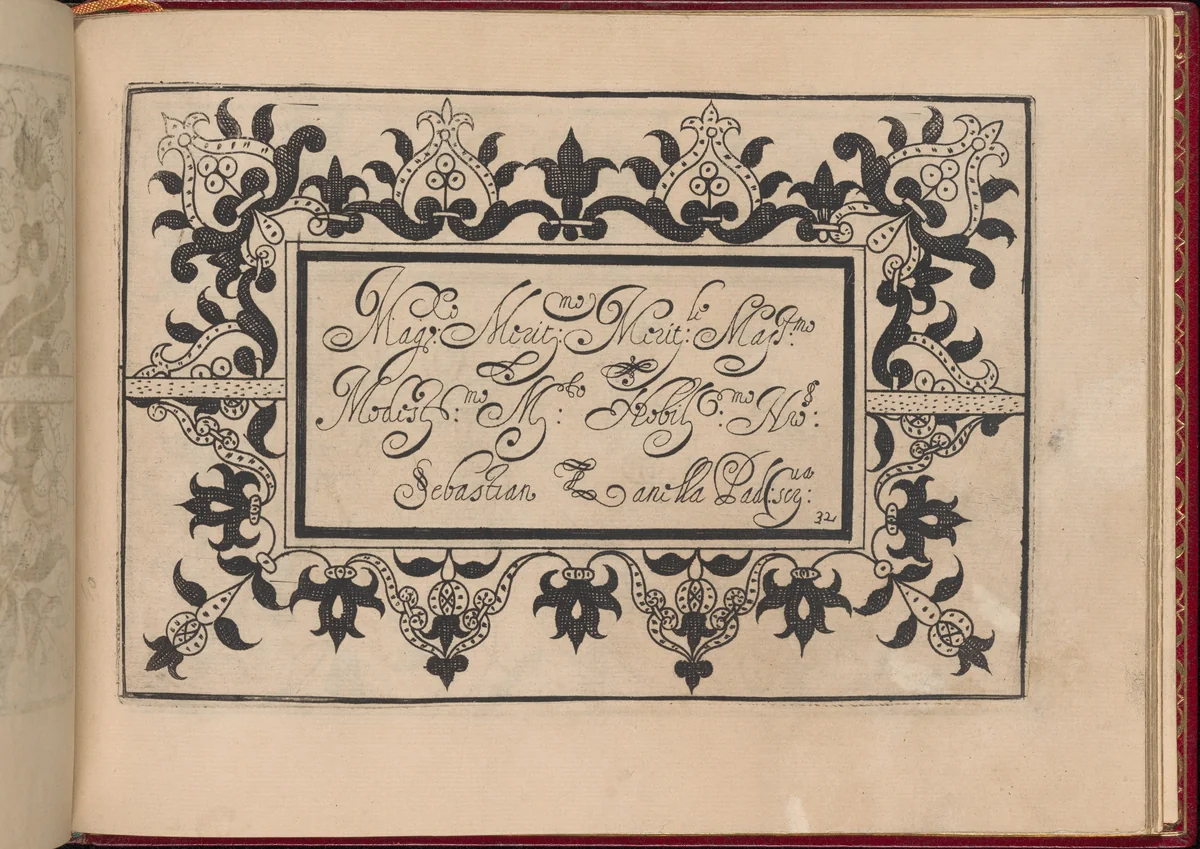 Mag:co Merit:mo Merit:le Mag:mo
Modest:mo M:to Nobil:mo Nro:
Sebastian Zanella Pad: scy:ua
32